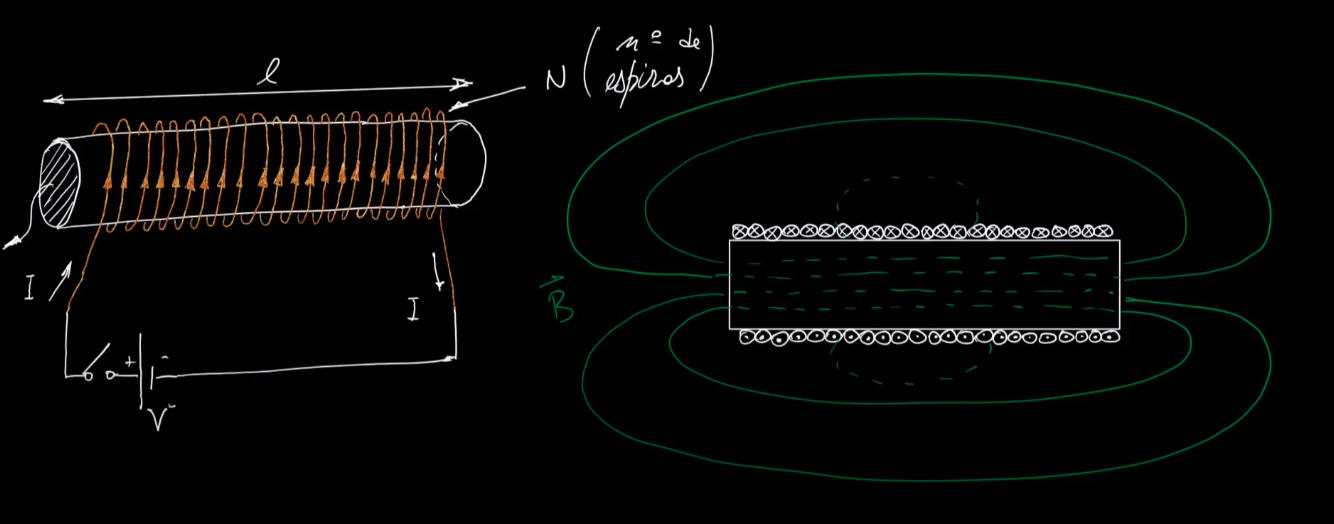 l
N (nº de
espiras)
I
I
+ -
V
B